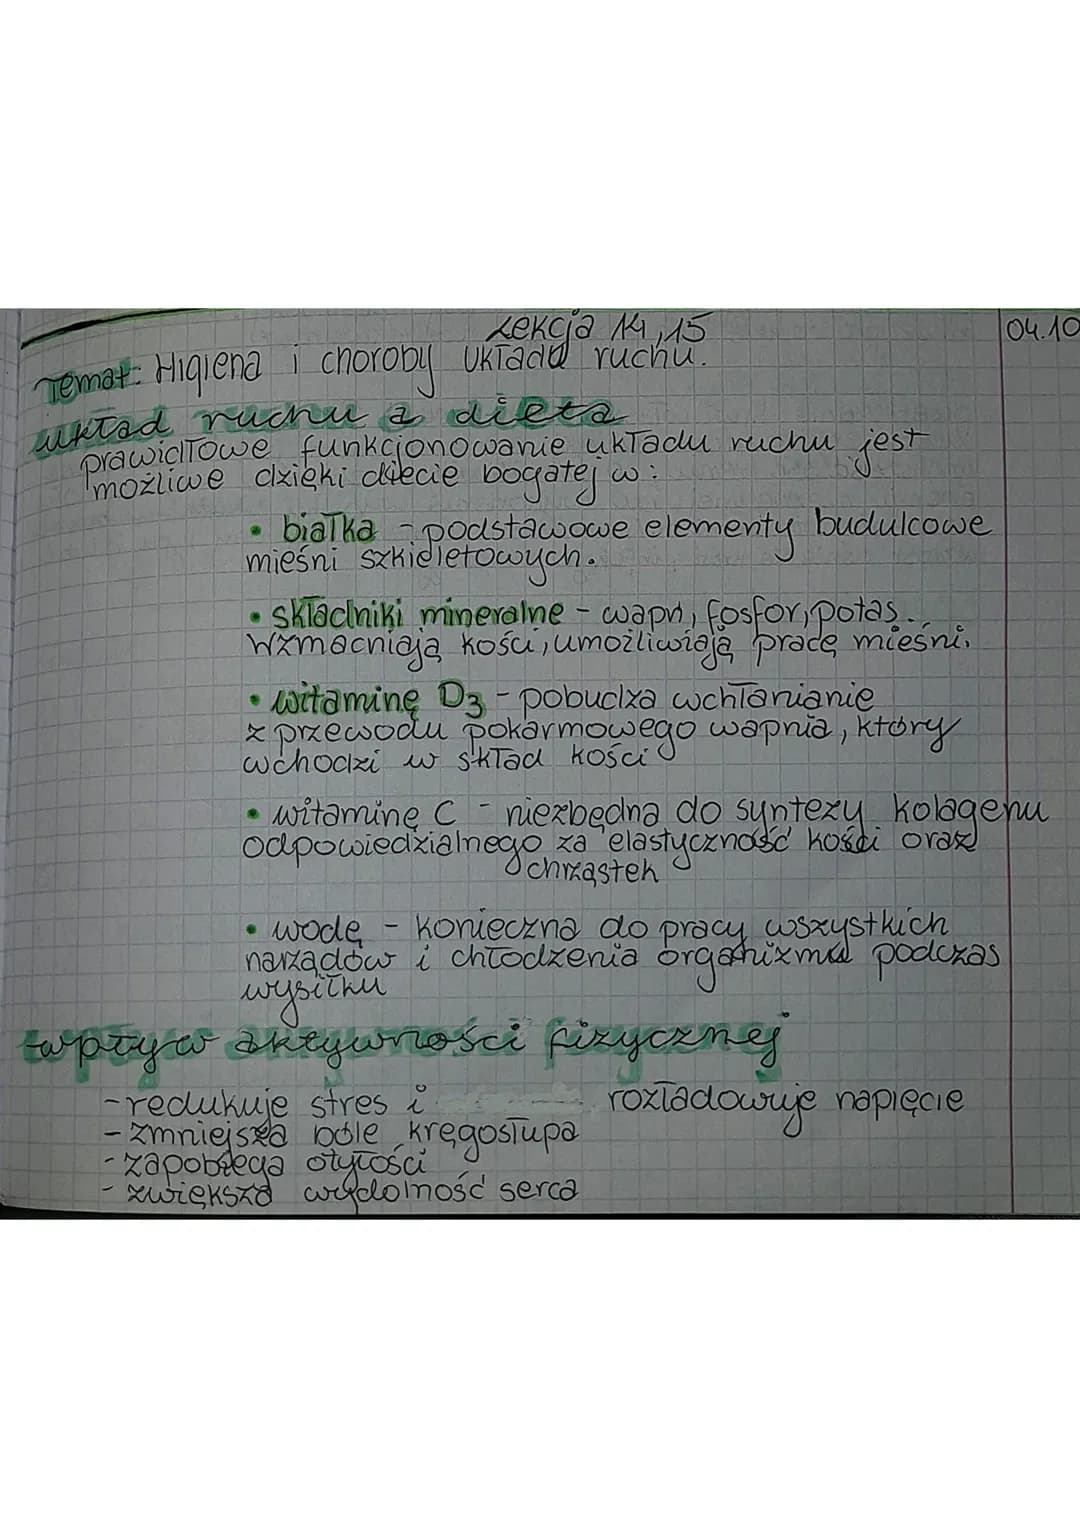 Lekcja 14,15
04.10
Temat: Higiena i choroby układu ruchu.
układ ruchu a dieta
prawidłowe funkcjonowanie układu ruchu jest
możliwe dzięki diecie bogatej w:
• białka - podstawowe elementy budulcowe
mięśni szkieletowych.
• składniki mineralne - wapń, fosfor, potas.
Wzmacniają kości, umożliwiają pracę mięśni.
• witaminę D3 - pobudza wchłanianie
z przewodu pokarmowego wapnia, który
wchodzi w skład kości
• witaminę C - niezbędna do syntezy kolagenu
odpowiedzialnego za elastyczność kości oraz
chrząstek
• wodę - konieczna do pracy wszystkich
narządów i chłodzenia organizmu podczas
wysiłku
wpływ aktywności fizycznej
- redukuje stres i rozładowuje napięcie
- zmniejsza bóle kręgosłupa
- zapobiega otyłości
- zwiększa wydolność serca